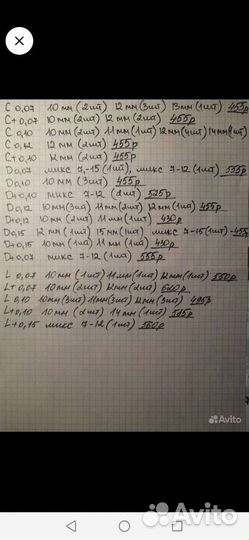 C 0,07 10мм (2шт) 12мм (3шт) 13мм (1шт) 455р
C+0,07 10мм (2шт) 12мм (2шт) 455р
C 0,10 10мм (2шт) 11мм (1шт) 12мм (4шт) 14мм
C 0,12 12мм (2шт) 455р
C+0,10 12мм (2шт) 455р
D 0,07 микс 7-15 (1шт), микс 7-12 (1шт) 555р
D 0,10 10мм (3шт) 455р
D+0,10 микс 7-12 (2шт) 525р
D 0,12 10мм (3шт) 11мм (2шт) 12мм (1шт) 455р
D+0,12 10мм (2шт) 11мм (1шт) 430р
D 0,15 12мм (1шт) 15мм (1шт) микс 7-15 (1шт) - 455р
D+0,15 10мм (1шт) 11мм (1шт) 430р
D+0,07 микс 7-12 (1шт) 555р
L 0,07 10мм (1шт) 11мм (1шт) 12мм (1шт) 550р
L+0,07 10мм (2шт) 12мм (2шт) 620р
L 0,10 10мм (3шт) 11мм (3шт) 12мм (3шт) 495р
L+0,10 10мм (2шт) 14мм (1шт) 515р
L+0,15 микс 7-12 (1шт) 560р
Avito
Avito